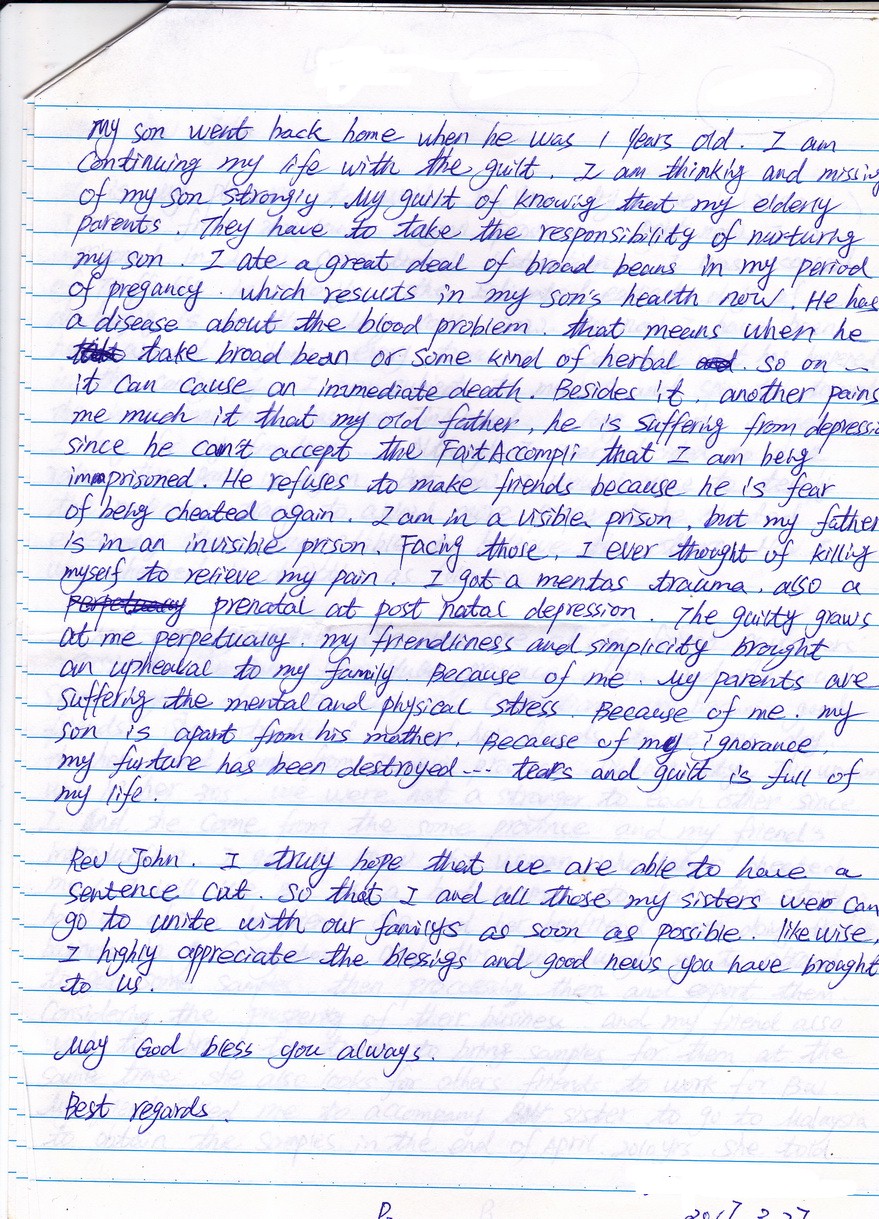 My son went back home when he was 1 years old. I am
continuing my life with the guilt. I am thinking and missing
of my son strongly. My guilt of knowing that my elderly
parents. They have to take the responsibility of nurturing
my son. I ate a great deal of broad beans in my period
of pregancy. which results in my son's health now. He has
a disease about the blood problem. that means when he
take broad bean or some kind of herbal so on ---
it can cause an immediate death. Besides it, another pains
me much it that my old father, he is suffering from depressi
since he can't accept the Fait Accompli that I am being
imprisoned. He refuses to make friends because he is fear
of being cheated again. I am in a visible prison, but my father
is in an invisible prison. Facing those, I ever thought of killing
myself to relieve my pain. I got a mental trauma, also a
prenatal at post natal depression. The guilty graws
at me perpetualy. my friendliness and simplicity brought
an upheaval to my family. Because of me. My parents are
suffering the mental and physical stress. Because of me. my
son is apart from his mother. Because of my ignorance,
my furture has been destroyed --- tears and guilt is full of
my life.
Rev John. I truly hope that we are able to have a
sentence cut. So that I and all those my sisters can
go to unite with our familys as soon as possible. likewise,
I highly appreciate the blessigs and good news you have brought
to us.
May God bless you always.
Best regards.
2017.2.27